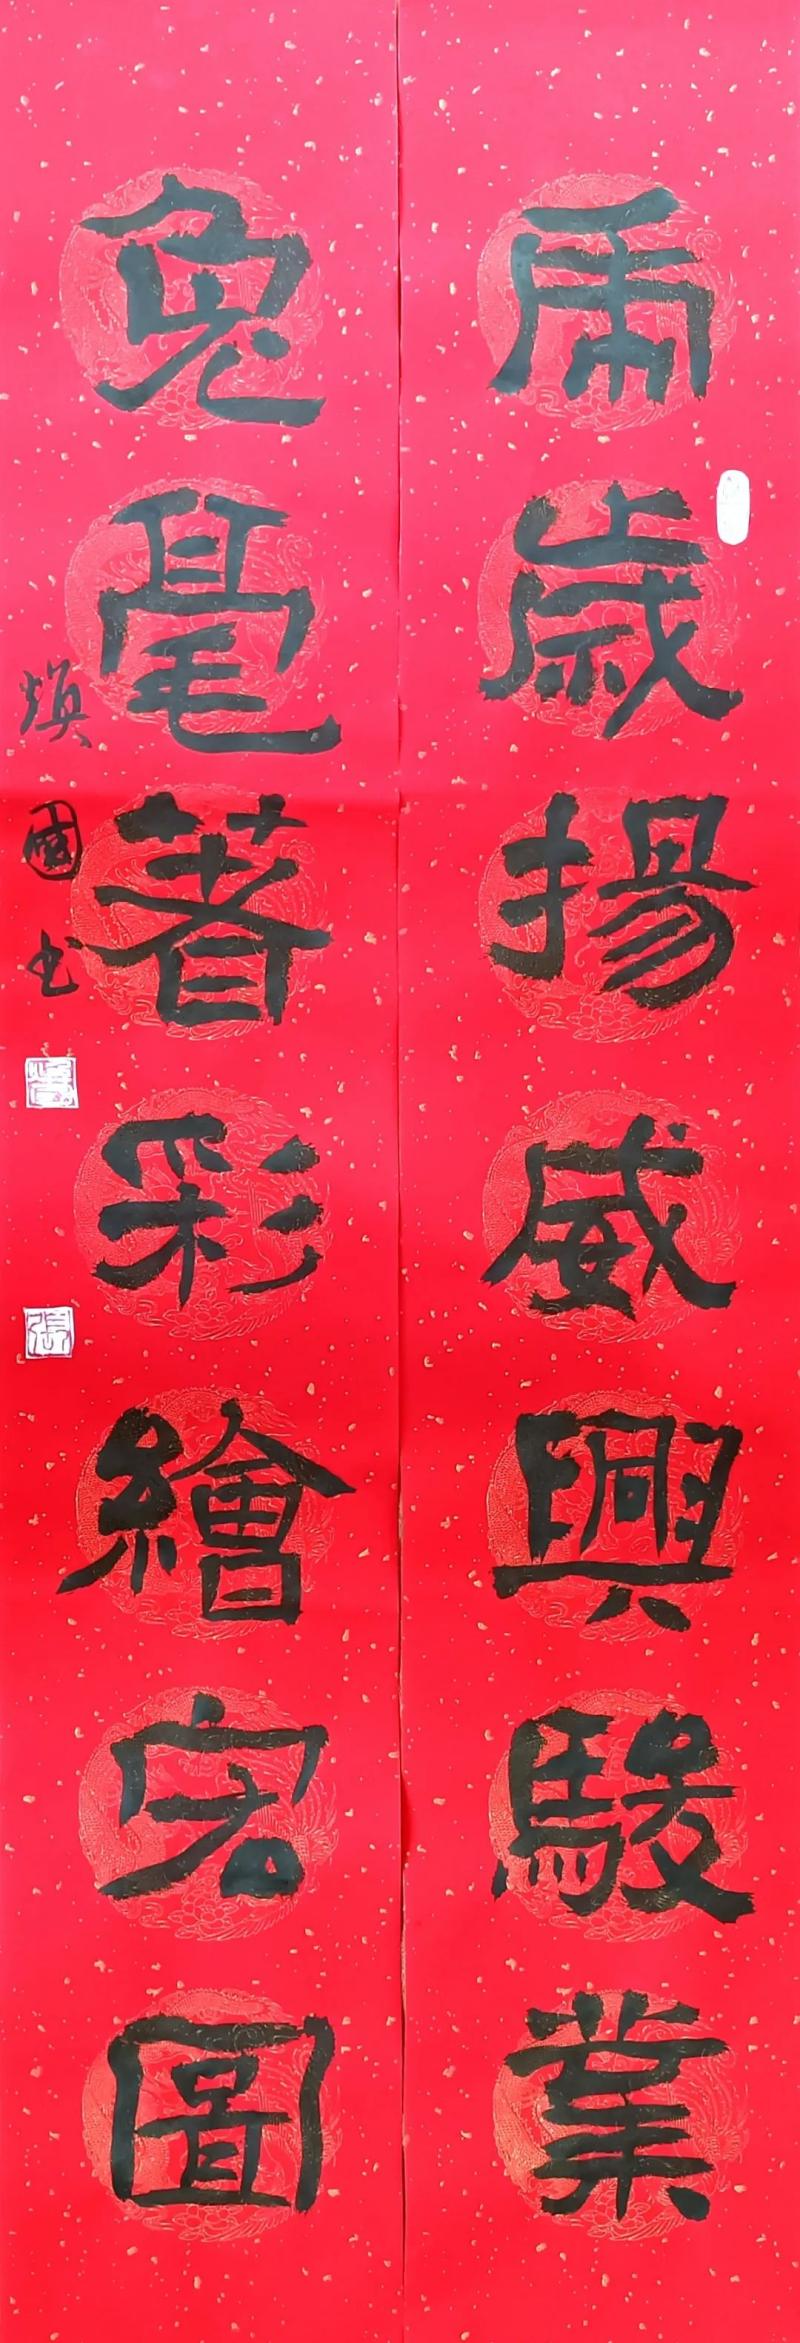 虎歲揚威興駿業
兔毫著彩繪宏圖
煥國书
張